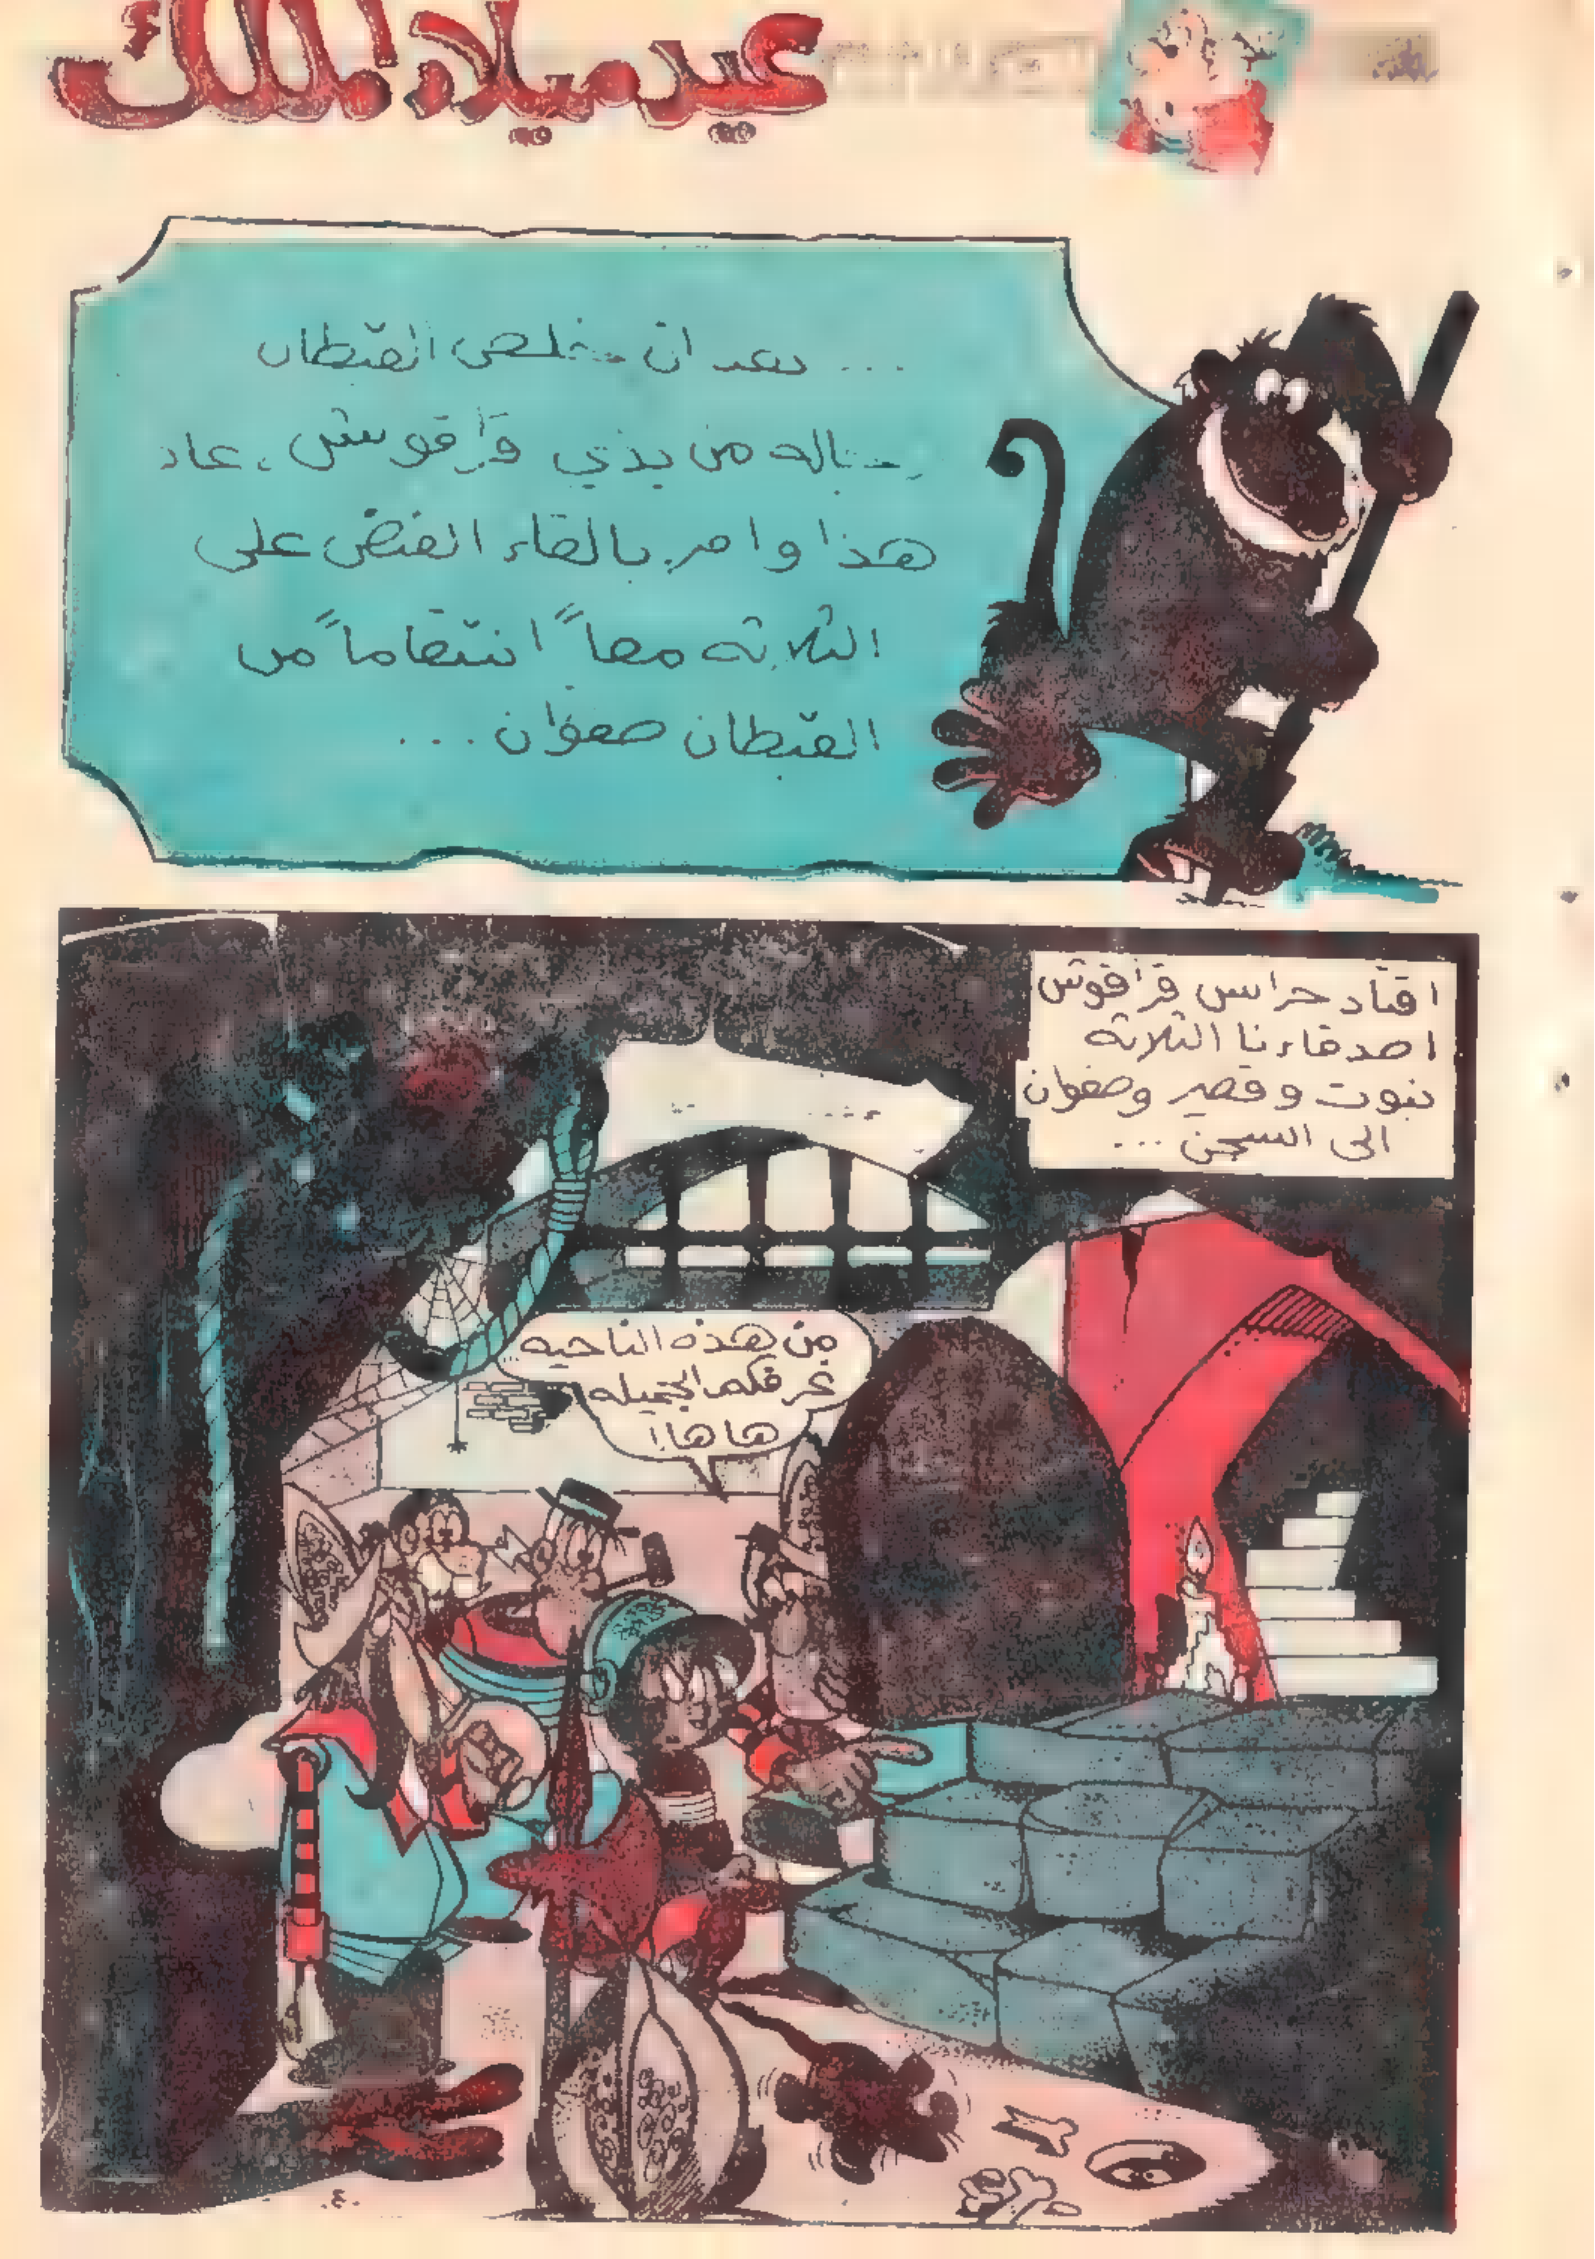 عيد ميلاد الملك
... بعد ان خلص القبطان
رجاله من يدي قراقوش، عاد
هذا وامر بالقاء القبض على
الثلاثه معاً انتقاماً من
القبطان صفوان ...
اقتاد حراس قراقوش
اصدقاءنا الثلاثه
نبوت وقصير وصفوان
الى السجن ...
من هذه الناحيه
غرفكم الجميله
ها ها!
.٤.